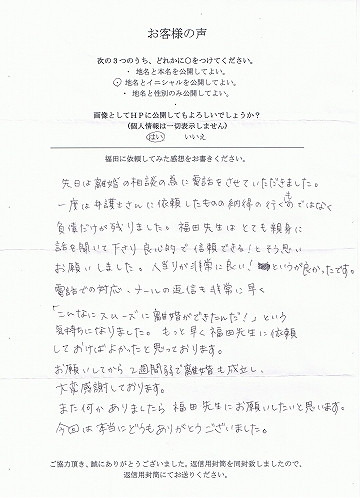 お客様の声
次の3つのうち、どれかに○をつけてください。
・ 地名と本名を公開してよい。
・ 地名とイニシャルを公開してよい。
・ 地名と性別のみ公開してよい。
・
画像としてHPに公開してもよろしいでしょうか?
(個人情報は一切表示しません)
はい いいえ
福田に依頼してみた感想をお書きください。
先日は離婚の相談の為に電話をさせていただきました。
一度は弁護士さんに依頼したものの納得の行くものではなく
負債だけが残りました。福田先生はとても親身に
話を聞いて下さり良心的で信頼できる!とそう思い
お願いしました。人当りが非常に良い!というが良かったです。
電話での対応、メールの返信も非常に早く
「こんなにスムーズに離婚ができたんだ!」という
気持ちになりました。もっと早く福田先生に依頼
しておけばよかったと思っております。
お願いしてから2週間弱で離婚も成立し、
大変感謝しております。
また何かありましたら福田先生にお願いしたいと思います。
今回は本当にどうもありがとうございました。
ご協力頂き、誠にありがとうございました。返信用封筒を同封致しましたので、
返信用封筒にてお送りください。